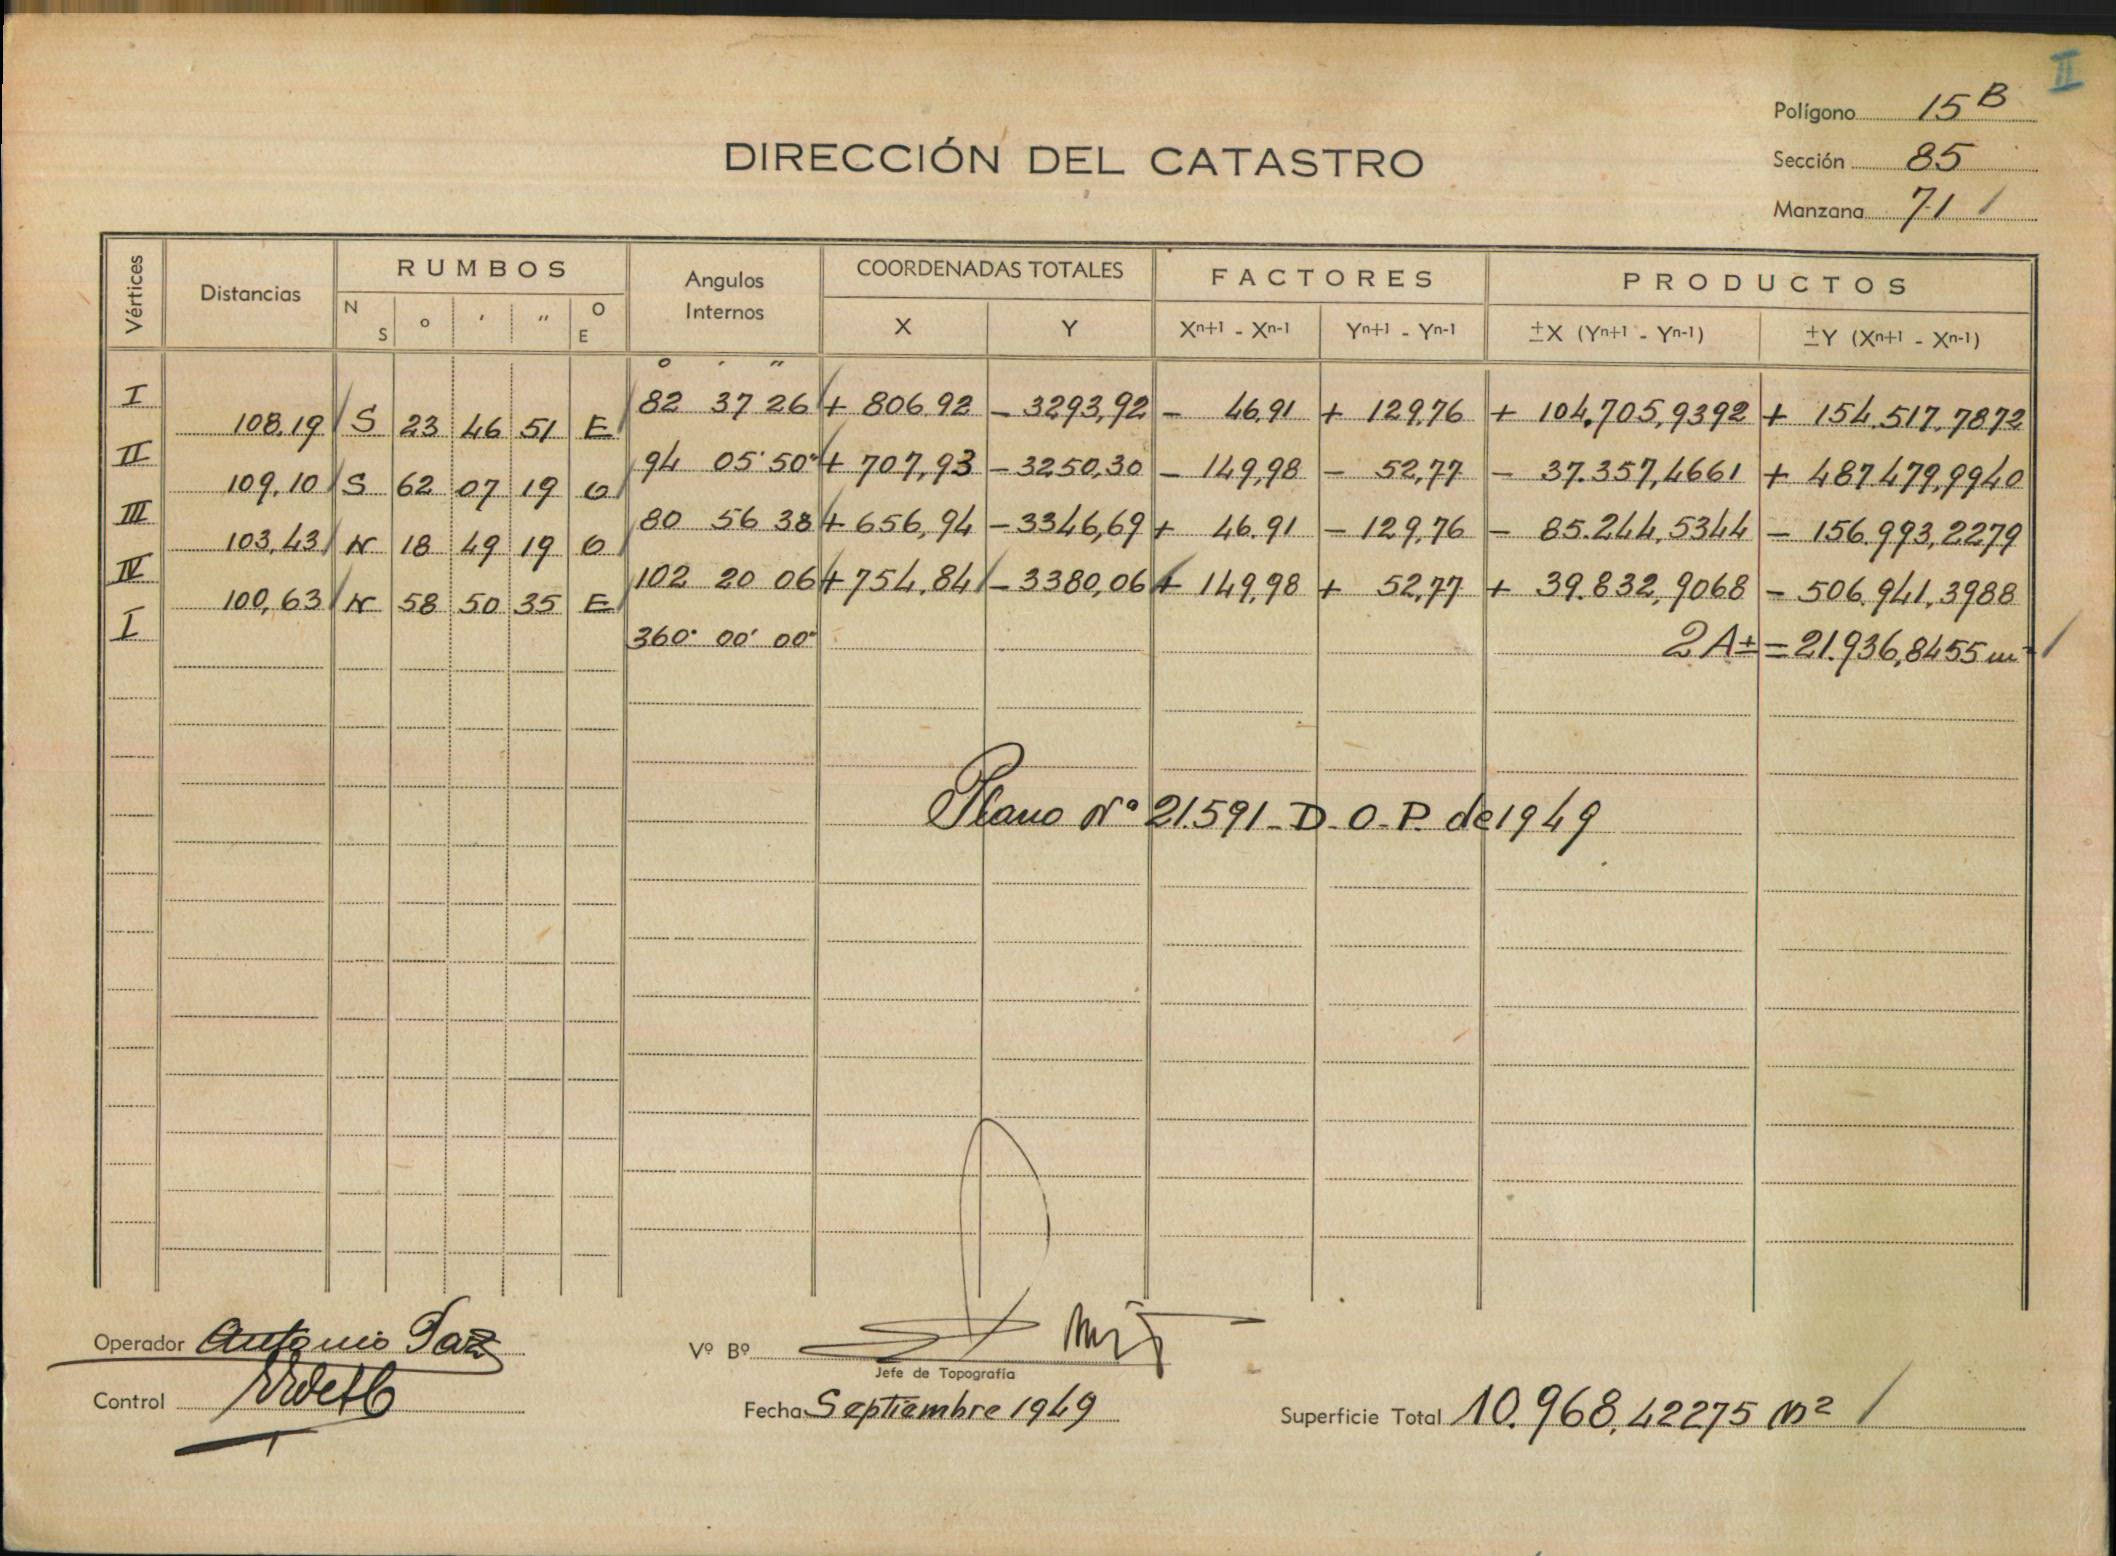 II
Polígono 15 B
DIRECCIÓN DEL CATASTRO
Sección 85
Manzana 71 /
Vértices Distancias RUMBOS Angulos Internos COORDENADAS TOTALES FACTORES PRODUCTOS
N S o ' " O E X Y Xn+1 - Xn-1 Yn+1 - Yn-1 ±X (Yn+1 - Yn-1) ±Y (Xn+1 - Xn-1)
o ' "
I 82 37 26 + 806.92 - 3293,92 - 46.91 + 129,76 + 104.705,9392 + 154.517.7872
108,19 S 23 46 51 E
II 94 05' 50" + 707,93 - 3250,30 - 149,98 - 52,77 - 37.357,4661 + 487.479,9940
109,10 S 62 07 19 O
III 80 56 38 + 656,94 - 3346,69 + 46.91 - 129,76 - 85.244,5344 - 156.993,2279
103,43 N 18 49 19 O
IV 102 20 06 + 754,84 - 3380,06 + 149,98 + 52,77 + 39.832,9068 - 506.941,3988
100,63 N 58 50 35 E
I 360° 00' 00" 2 A± = 21.936,8455 m²
Plano Nº 21.591 - D. O. P. de 1949
Operador Antonio Paz
Vº Bº
Jefe de Topografía
Control
Fecha Septiembre 1949
Superficie Total 10.968,42275 m² /